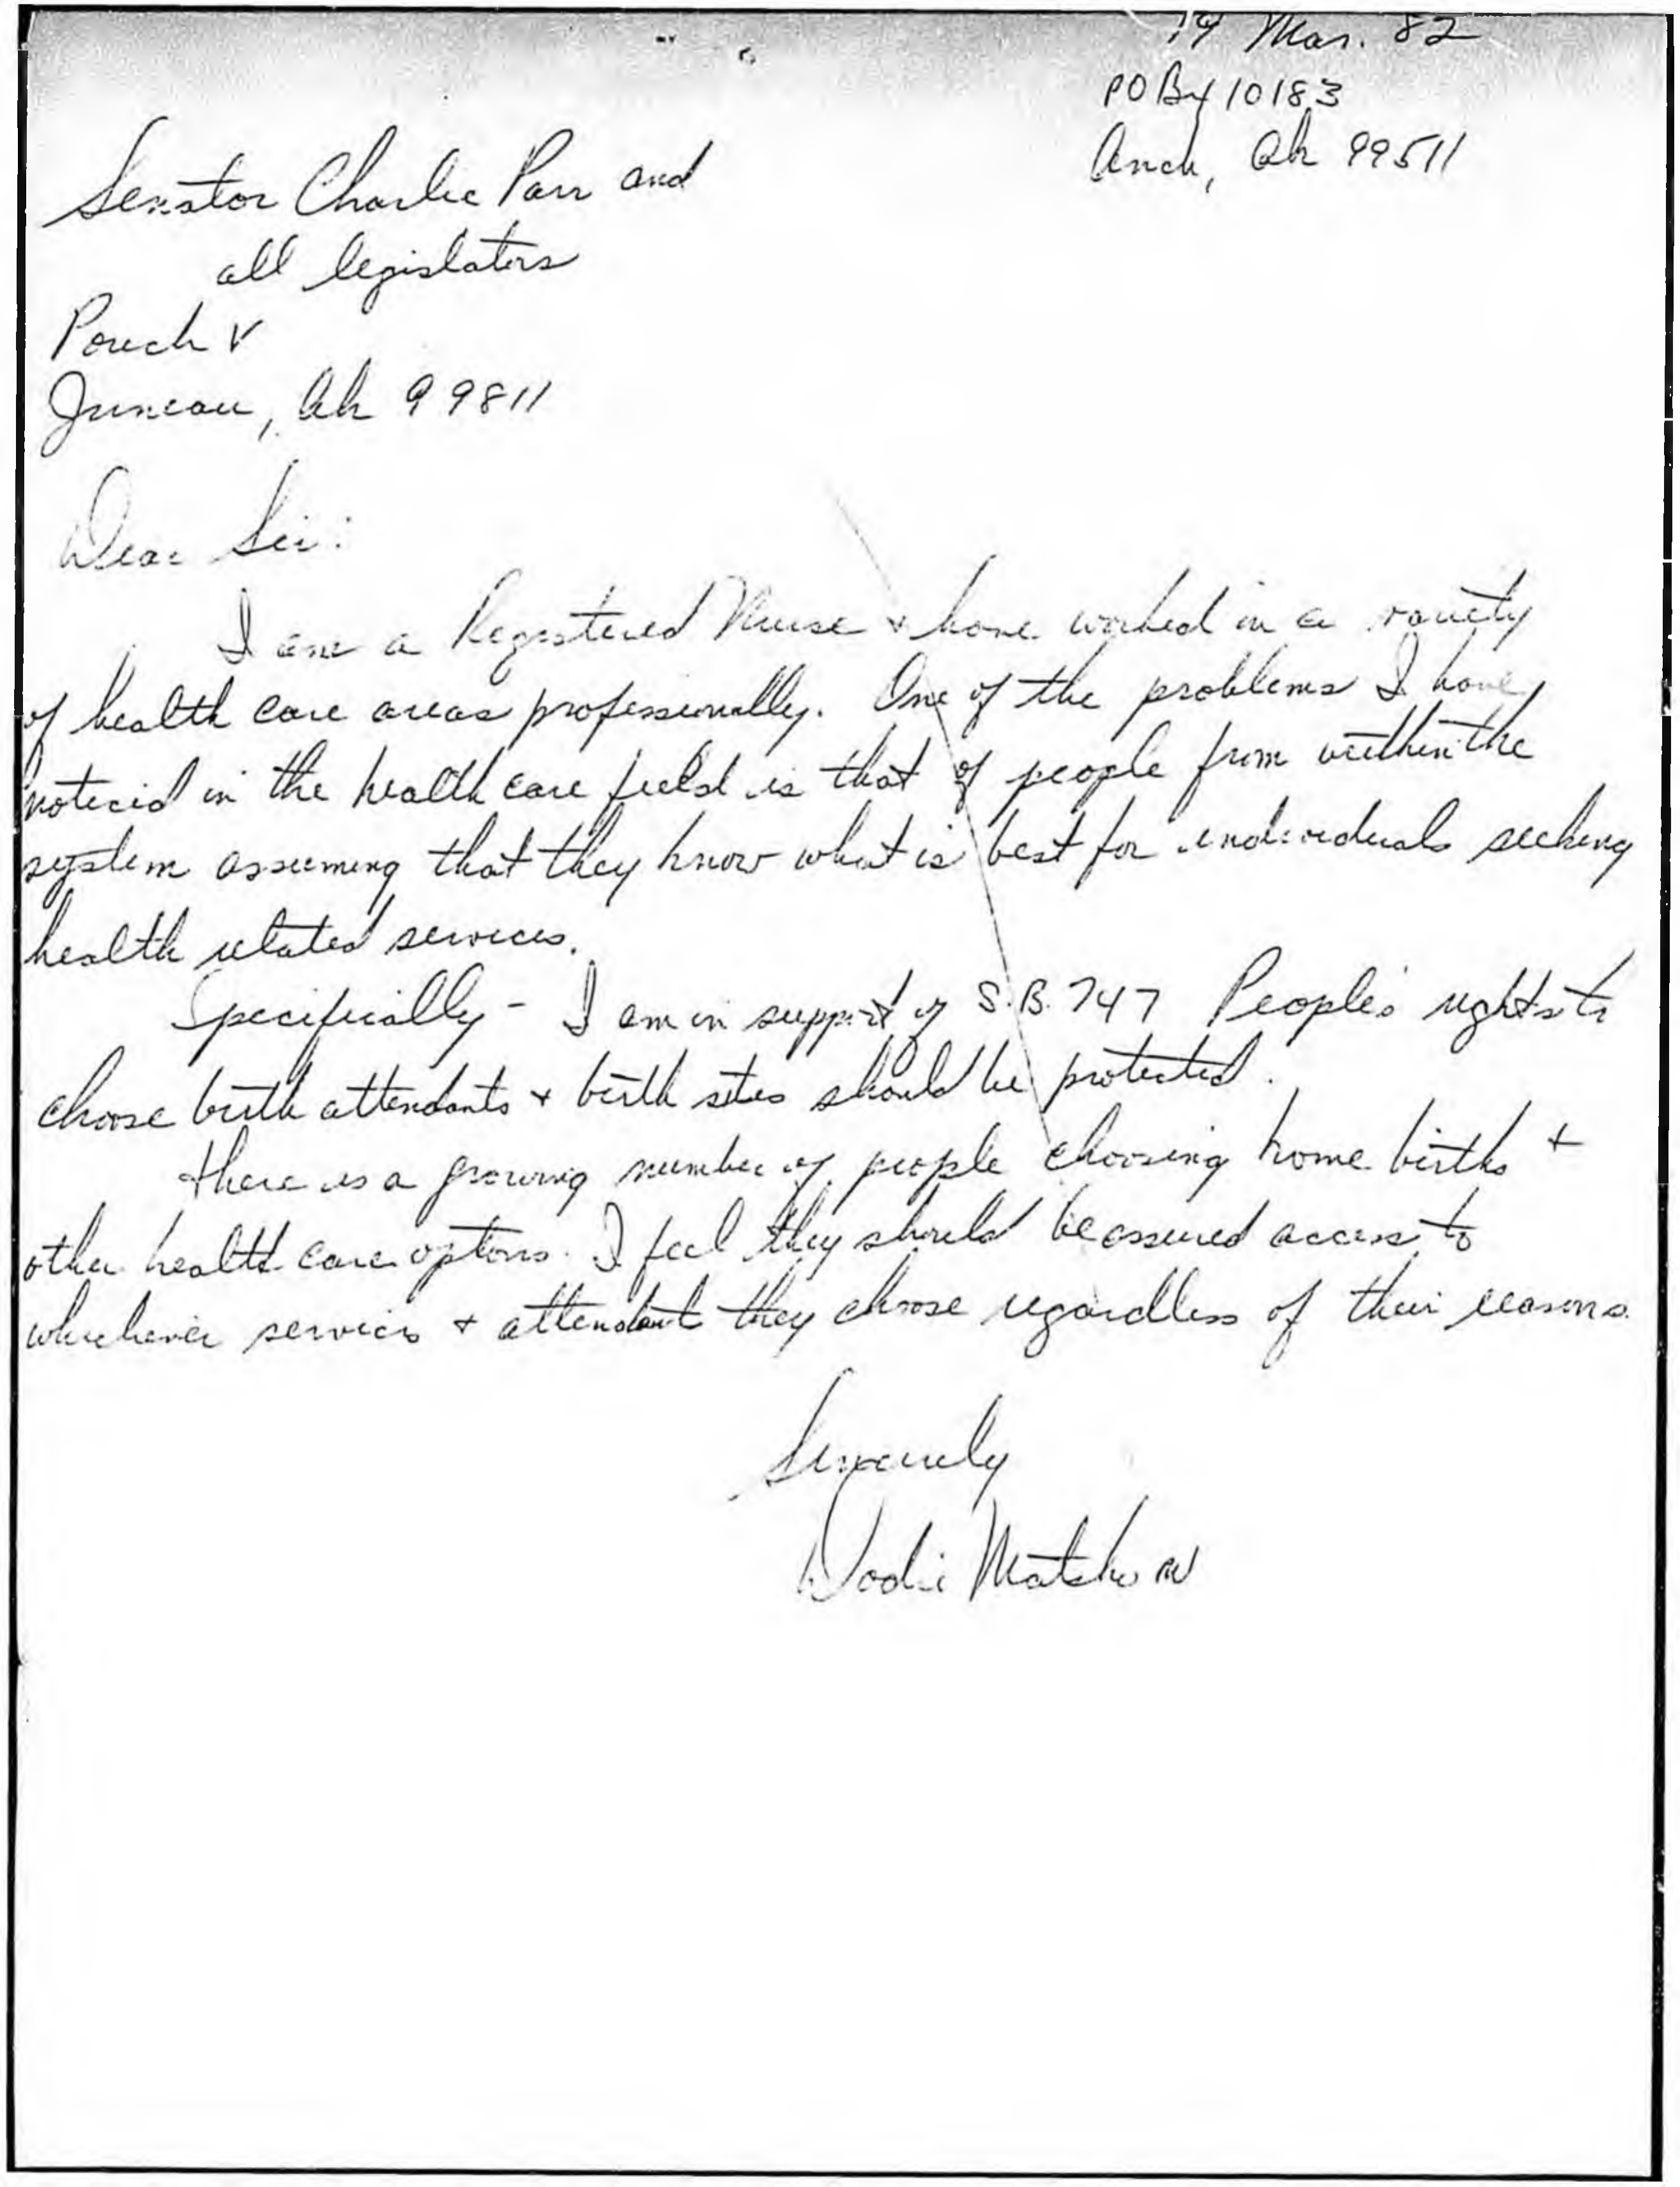 14 Mar. 82
PO Bx 10183
Anch, Ak 99511
Senator Charlie Parr and
all legislators
Pouch V
Juneau, Ak 99811
Dear Sir:
I am a Registered Nurse & have worked in a variety
of health care areas professionally. One of the problems I have
noticed in the health care field is that of people from within the
system assuming that they know what is best for individuals seeking
health related services.
Specifically - I am in support of S.B. 747 People's rights to
choose birth attendants & birth sites should be protected.
There is a growing number of people choosing home births &
other health care options. I feel they should be assured access to
whichever services & attendants they choose regardless of their reasons.
Sincerely
Dodie RN